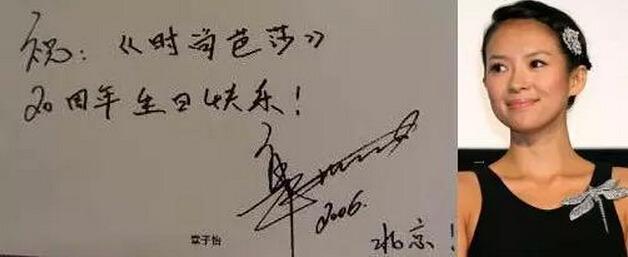 祝：《时尚芭莎》
20周年生日快乐！
2006.
北京！
章子怡